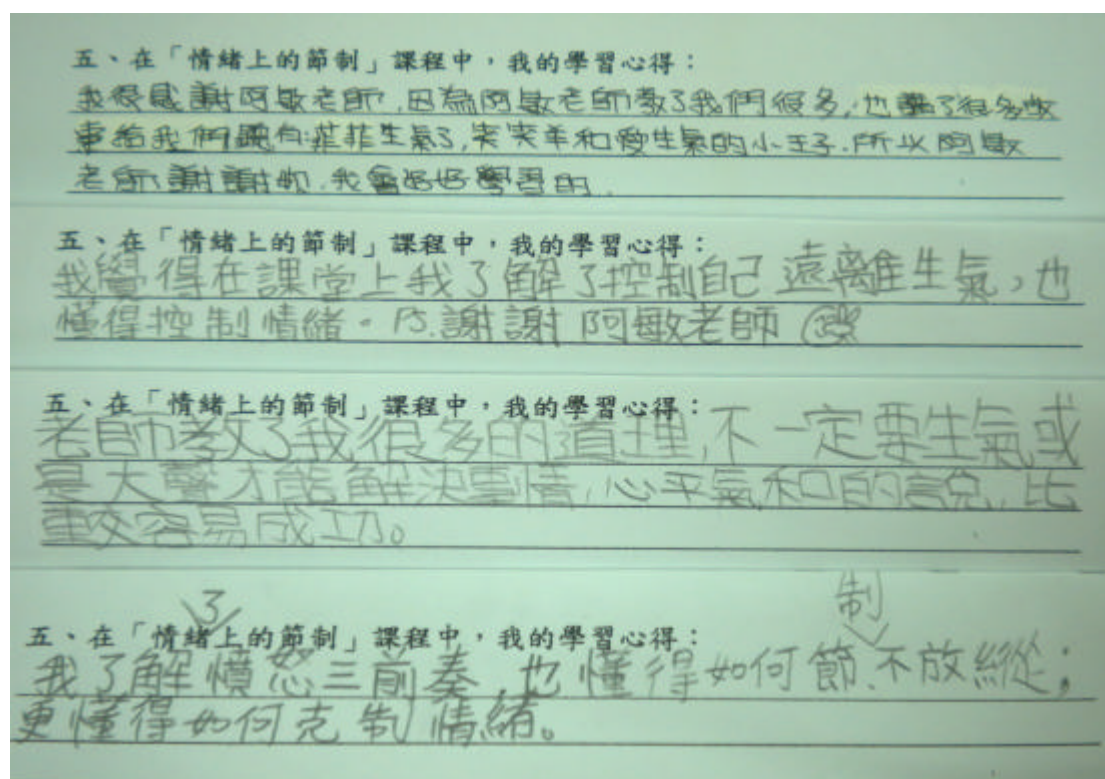 五、在「情緒上的節制」課程中，我的學習心得：
我很感謝阿敏老師，因為阿敏老師教了我們很多，也講了很多故
事給我們聽有:菲菲生氣了，笑笑羊和愛生氣的小王子。所以阿敏
老師謝謝妳，我會好好學習的。
五、在「情緒上的節制」課程中，我的學習心得：
我覺得在課堂上我了解了控制自己遠離生氣，也
懂得控制情緒。PS.謝謝阿敏老師
五、在「情緒上的節制」課程中，我的學習心得：
老師教了我很多的道理，不一定要生氣或
是大聲才能解決事情，心平氣和的說，比
較容易成功。
五、在「情緒上的節制」課程中，我的學習心得：
我了解了憤怒三前奏，也懂得如何節制、不放縱；
更懂得如何克制情緒。